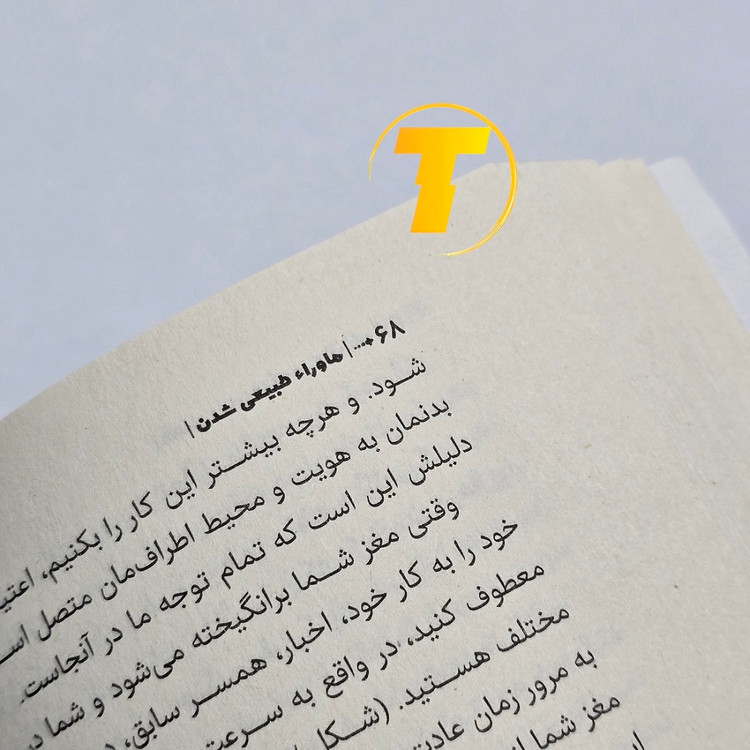 T
۶۸ ... | ماوراء طبیعی شدن |
شود. و هرچه بیشتر این کار را بکنیم،
بدنمان به هویت و محیط اطراف‌مان متصل
دلیلش این است که تمام توجه ما در آنجاست.
وقتی مغز شما برانگیخته می‌شود و شما
خود را به کار خود، اخبار، همسر سابق،
معطوف کنید، در واقع به سرعت
مختلف هستید. (شکل
به مرور زمان
مغز شما